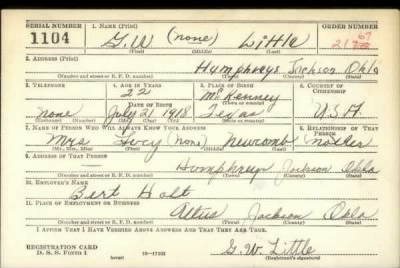 SERIAL NUMBER
1. NAME (Print)
ORDER NUMBER
1104
G.W (none) Little
(First) (Middle) (Last)
2. ADDRESS (Print)
Humphreys Jackson Okla
(Number and street or R. F. D. number) (Town) (County) (State)
3. TELEPHONE
4. AGE IN YEARS
5. PLACE OF BIRTH
6. COUNTRY OF CITIZENSHIP
22
McKenney
DATE OF BIRTH
(Town or county)
none
July 21 1918
Texas
U.S.A.
(Mo.) (Day) (Yr.)
(State or country)
7. NAME OF PERSON WHO WILL ALWAYS KNOW YOUR ADDRESS
8. RELATIONSHIP OF THAT PERSON
Mrs (non) Newcomb
(Mr., Mrs., Miss) (First) (Middle) (Last)
9. ADDRESS OF THAT PERSON
Humphreys Jackson Okla
(Number and street or R. F. D. number) (Town) (County) (State)
10. EMPLOYER'S NAME
Bert Holt
11. PLACE OF EMPLOYMENT OR BUSINESS
Altus Jackson Okla
(Number and street or R. F. D. number) (Town) (County) (State)
I AFFIRM THAT I HAVE VERIFIED ABOVE ANSWERS AND THAT THEY ARE TRUE.
REGISTRATION CARD
D. S. S. FORM 1
(over)
G.W. Little
(Registrant's signature)